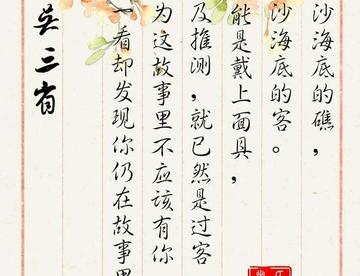 沙海底的礁，
沙海底的客。
能是戴上面具，
及推测，就已然是过客
为这故事里不应该有你
看却发现你仍在故事里
吴三省